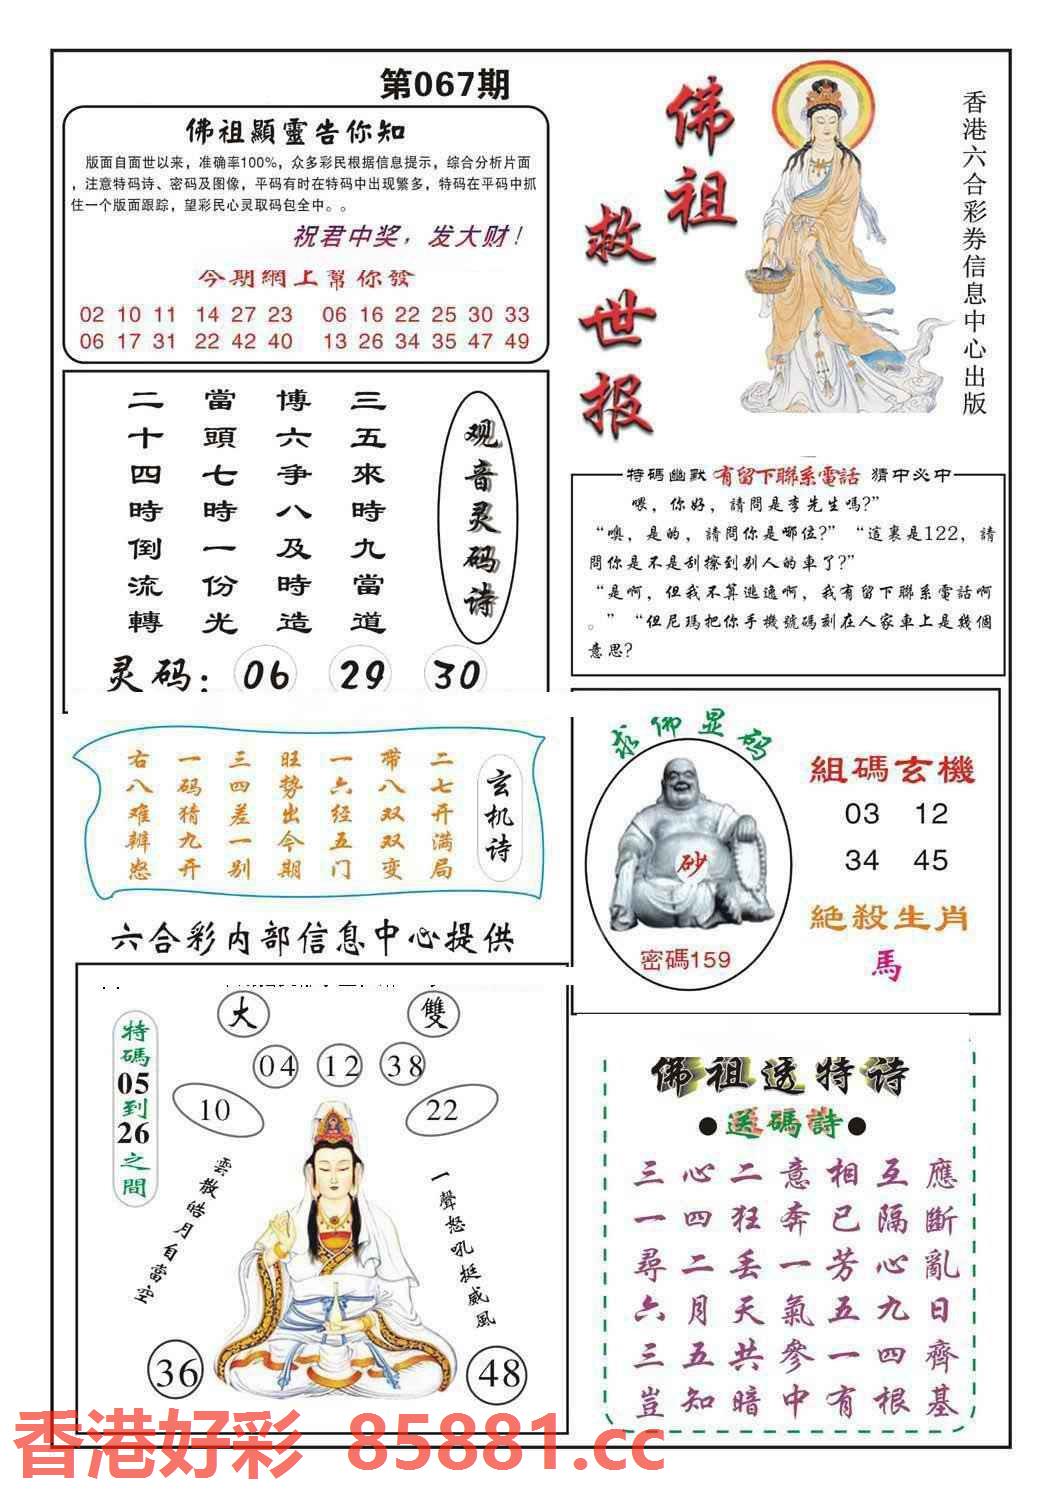 第067期
佛祖顯靈告你知
版面自面世以来，准确率100%，众多彩民根据信息提示，综合分析片面
，注意特码诗、密码及图像，平码有时在特码中出现繁多，特码在平码中抓
住一个版面跟踪，望彩民心灵取码包全中。。
祝君中奖，发大财！
今期網上幫你發
02 10 11 14 27 23 06 16 22 25 30 33
06 17 31 22 42 40 13 26 34 35 47 49
佛祖
救世报
香港六合彩券信息中心出版
观音灵码诗
三五來時九當道
博六爭八及時造
當頭七時一份光
二十四時倒流轉
灵码：06 29 30
特碼幽默 有留下聯系電話 猜中必中
喂，你好，請問是李先生嗎？”
“噢，是的，請問你是哪位？” “這裏是122，請
問你是不是刮擦到别人的車了？”
“是啊，但我不算逃逸啊，我有留下聯系電話啊
。” “但尼瑪把你手機號碼刻在人家車上是幾個
意思？
玄机诗
二七开满局
带八双双变
一六经五门
旺势出今期
三四差一别
一码猜九开
右八难辨怒
求佛显码
砂
密碼159
組碼玄機
03 12
34 45
絕殺生肖
馬
六合彩内部信息中心提供
大
雙
04 12 38
10
22
特碼05到26之間
雲散皓月自當空
一聲怒吼挺威風
36
48
佛祖透特诗
●送碼詩●
三心二意相互應
一四狂奔已隔斷
尋二丢一芳心亂
六月天氣五九日
三五共參一四齊
豈知暗中有根基
香港好彩 85881.cc